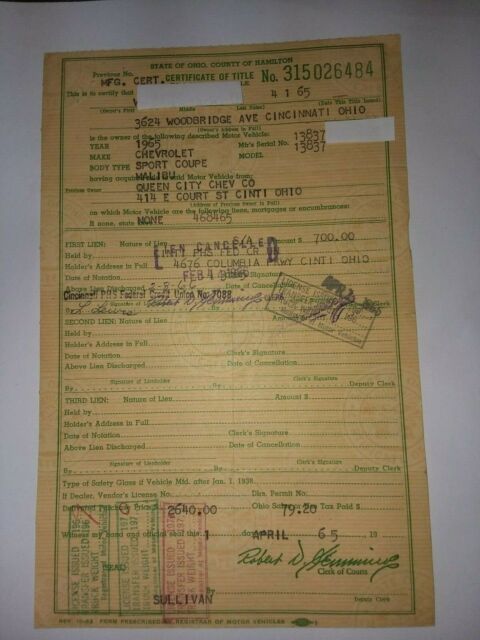 STATE OF OHIO, COUNTY OF HAMILTON
Previous No. MFG. CERT. CERTIFICATE OF TITLE No. 315026484
This is to certify that 4 1 65
(Owner's First Middle Last Name) (Date This Title Issued)
3624 WOODBRIDGE AVE CINCINNATI OHIO
(Owner's Address in Full)
is the owner of the following described Motor Vehicle: 13837
YEAR 1965 Mfr's Serial No. 13837
MAKE CHEVROLET MODEL
BODY TYPE SPORT COUPE
MALIBU
having acquired said Motor Vehicle from:
Previous Owner QUEEN CITY CHEV CO
414 E COURT ST CINTI OHIO
(Address of Previous Owner in Full)
on which Motor Vehicle are the following liens, mortgages or encumbrances:
If none, state NONE 468465
FIRST LIEN: Nature of Lien Amount $ 700.00
LIEN CANCELLED
Held by CINTI PHS FED CR UN
Holder's Address in Full 4676 COLUMBIA PKWY CINTI OHIO
Date of Notation FEB
Above Lien Discharged 2-8-66
Cincinnati PHS Federal Credit Union No. 7088
SECOND LIEN: Nature of Lien Amount
Held by
Holder's Address in Full
Date of Notation Clerk's Signature
Above Lien Discharged Date of Cancellation
By By Deputy Clerk
Signature of Lienholder Clerk's Signature
THIRD LIEN: Nature of Lien Amount $
Held by
Holder's Address in Full
Date of Notation Clerk's Signature
Above Lien Discharged Date of Cancellation
By By Deputy Clerk
Signature of Lienholder Clerk's Signature
Type of Safety Glass if Vehicle Mfd. after Jan. 1, 1938
If Dealer, Vendor's License No. Dlrs. Permit No.
Delivered Purchase Price $ 2640.00 Ohio Sales Tax Paid $ 79.20
Witness my hand and official seal this 1 day APRIL 65 19
(SEAL)
Robert D. Jennings
Clerk of Courts
By SULLIVAN Deputy Clerk
FORM PRESCRIBED BY REGISTRAR OF MOTOR VEHICLES